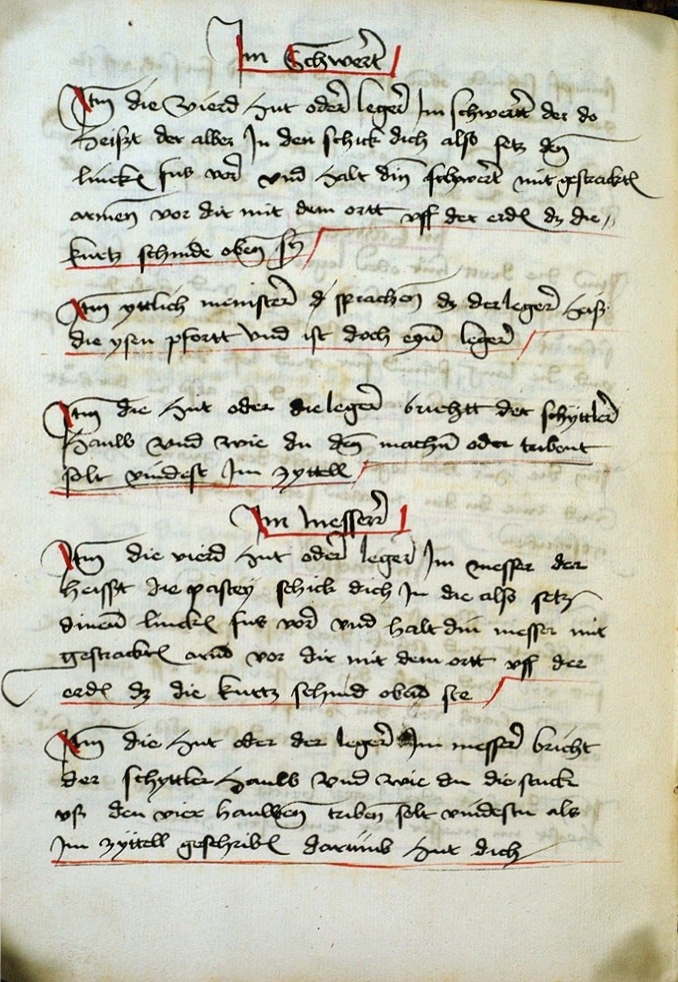 Im Schwert
Itm die vierd hut oder leger Im schwertt der do
heißt der alber In den schick dich also setz den
lincken fus vor vnd halt din schwert mit gestrackten
armen vor dir mit dem ortt vff der erden dz die
kurtz schnide oben sy
Itm yttlich meinster sprachen dz der leger heiß
die ysen pfortt vnd ist doch eyn leger
Itm die hut oder die leger brichtt der schyttler
hauw vnd wie du den machen oder tribent
solt vindest Im zyttell
Im messerr
Itm die vierd hut oder leger Im messer der
heisst die pastey schick dich In die also setz
dinen lincken fus vor vnd halt din messer mit
gestrackten arm vor dir mit dem ortt vff der
erden dz die kurtz schnid oban ste
Itm die hut oder der leger Im messer bricht
der schyttler hauw vnd wie du die stuck
vß den vier hauwen triben solt vindestu als
Im zyttell geschriben darumb hut dich